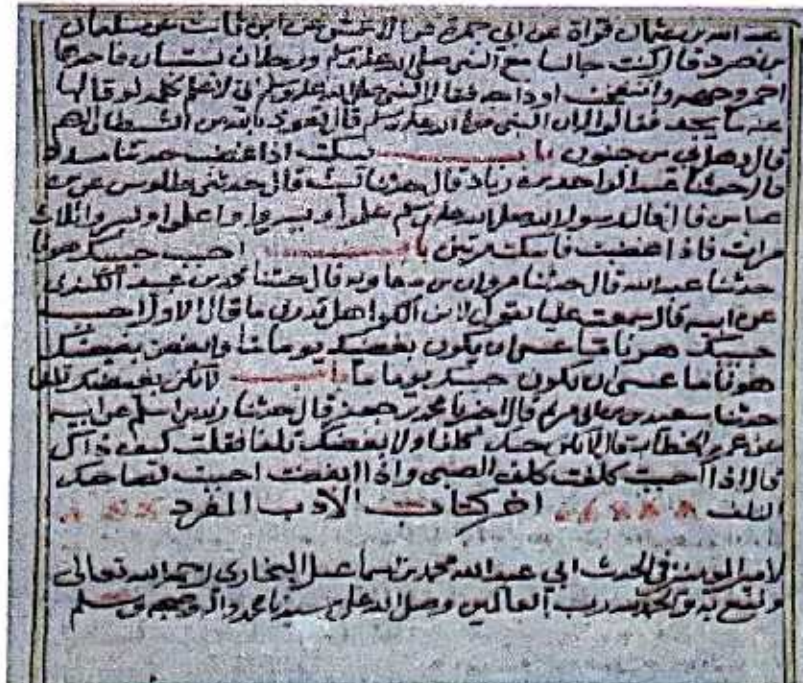 عبد الله بن عثمان قراة عن ابي حمزة عن الاعمش عن ابن ثابت عن سليمان
بن صرد قال كنت جالسا مع النبي صلى الله عليه وسلم ورجلان يستبان فاحدهما
احمر وجهه وانتفخت اوداجه فقال النبي صلى الله عليه وسلم اني لاعلم كلمة لو قالها
عنه ما يجد فقالوا له ان النبي صلى الله عليه وسلم قال تعوذ بالله من الشيطان الرجيم
قال وهل بي من جنون باب يسكت اذا غضب حدثنا مسدد
قال حدثنا عبد الواحد بن زياد قال حدثنا ليث قال حدثني طاوس عن بن
عباس قال قال رسول الله صلى الله عليه وسلم علموا ويسروا واعلموا ويسروا ثلاث
مرات فاذا غضبت فاسكت مرتين باب احبب حبيبك هونا
حدثنا عبد الله قال حدثنا مروان بن معاوية قال حدثنا محمد بن عبيد الكندي
عن ابيه قال سمعت عليا يقول لابن الكوا هل تدري ما قال الاول احبب
حبيبك هونا ما عسى ان يكون بغيضك يوما ما وابغض بغيضك
هونا ما عسى ان يكون حبيبك يوما ما باب لا يكن بغضك تلفا
حدثنا سعيد بن ابي مريم قال اخبرنا محمد بن جعفر قال حدثنا زيد بن اسلم عن ابيه
عن عمر بن الخطاب قال لا يكن حبك كلفا ولا بغضك تلفا فقلت كيف ذاك
قال اذا احببت كلفت كلف الصبي واذا ابغضت احببت لصاحبك
التلف اخر كتاب الادب المفرد
لامير المومنين في الحديث ابي عبد الله محمد بن اسماعيل البخاري رحمه الله تعالى
ونفع به والحمد لله رب العالمين وصلى الله على سيدنا محمد واله وصحبه وسلم